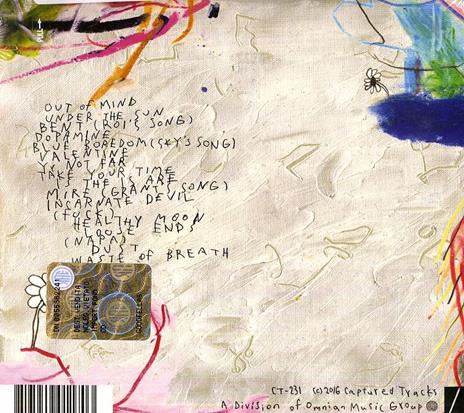 OUT OF MIND
UNDER THE SUN
BENT (ROI'S SONG)
DOPAMINE
BLUE BOREDOM (SKY'S SONG)
VALENTINE
YR NOT FAR
TAKE YOUR TIME
IS THE IS ARE
MIRE (GRANT'S SONG)
INCARNATE DEVIL
(FUSE)
HEALTHY MOON
LOOSE ENDS
(NAPA)
DUST
WASTE OF BREATH
CT-231 (c) 2016 Captured Tracks
A Division of Omnian Music Group